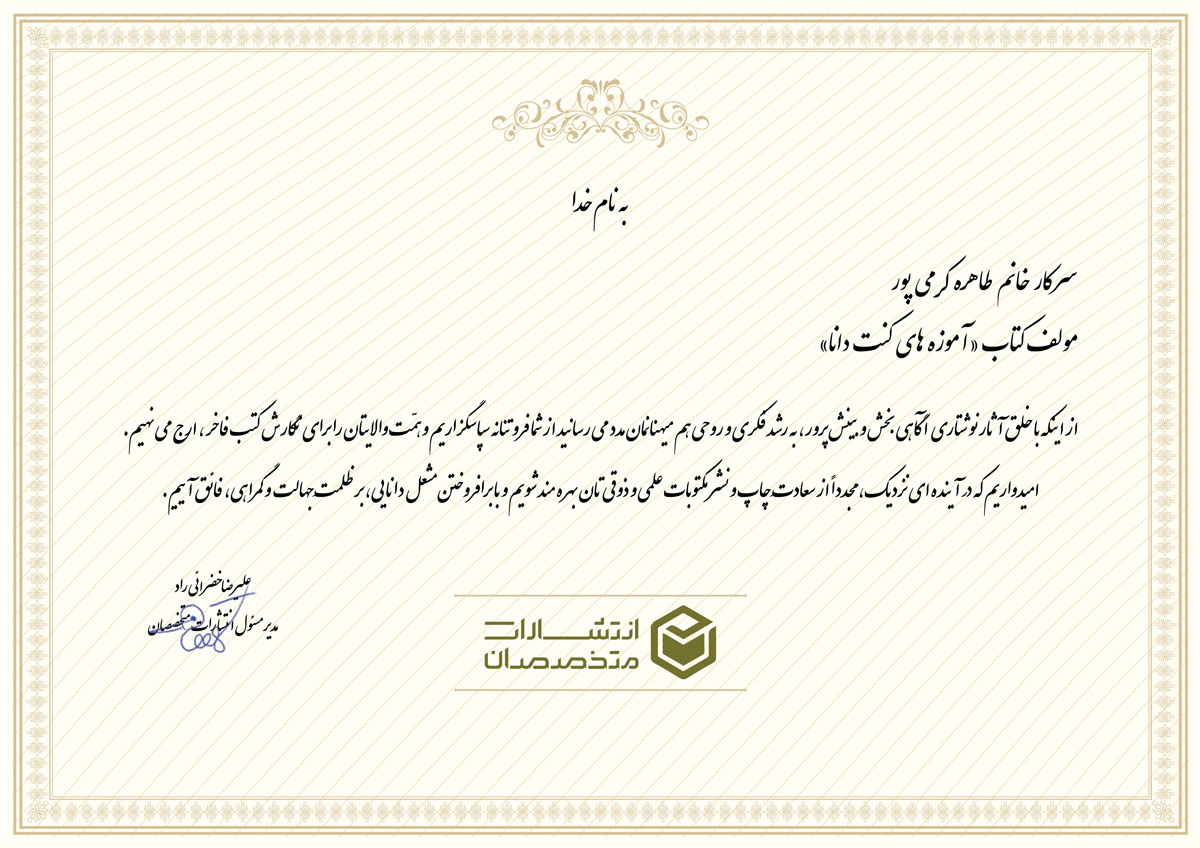 به نام خدا
سرکار خانم طاهره کرمی پور
مولف کتاب «آموزه های کنت دانا»
از اینکه با خلق آثار نوشتاری آگاهی بخش و بینش پرور، به رشد فکری و روحی هم میهنانمان مدد می رسانید از شما فروتنانه سپاسگزاریم و همّت والایتان را برای نگارش کتب فاخر، ارج می نهیم.
امیدواریم که در آینده ای نزدیک، مجدداً از سعادت چاپ و نشر مکتوبات علمی و ذوقی تان بهره مند شویم و با برافروختن مشعل دانایی، بر ظلمت جهالت و گمراهی، فائق آییم.
علیرضا خضرائی راد
مدیر مسئول انتشارات متخصصان
انتشارات
متخصصان